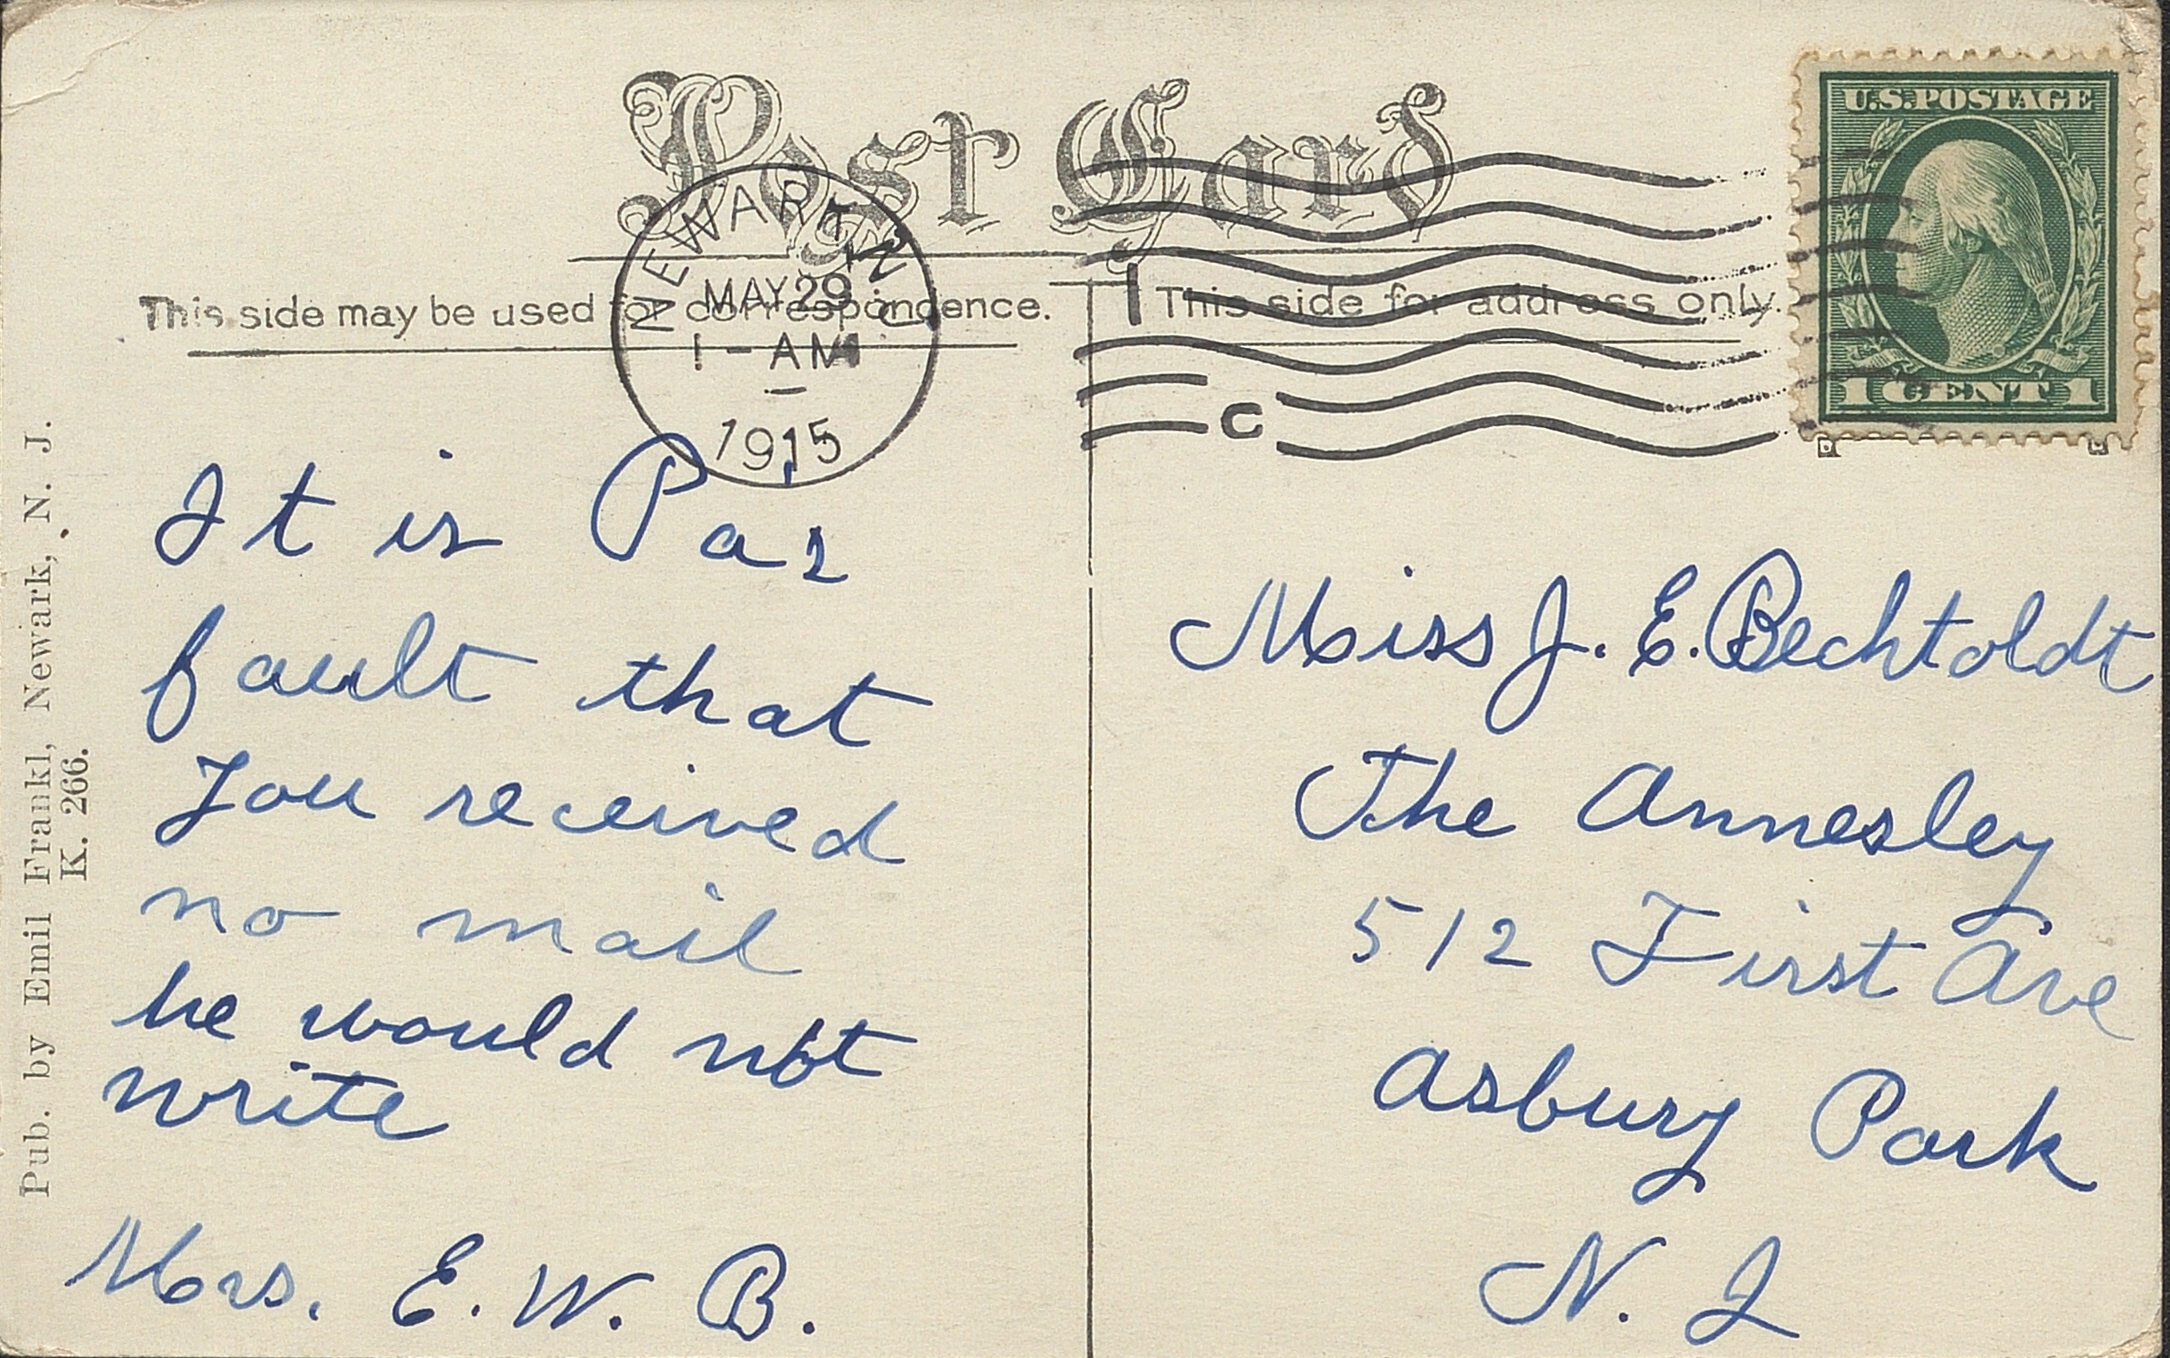 Post Card
U.S. POSTAGE
1 CENT 1
NEWARK, N.J.
MAY 29
1 - AM
1915
C
This side may be used for correspondence.
This side for address only.
It is Pa's
fault that
you received
no mail
he would not
write
Mrs. E. W. B.
Miss J. E. Bechtoldt
The Annesley
512 First Ave
Asbury Park
N. J
Pub. by Emil Frankl, Newark, N. J.
K. 266.